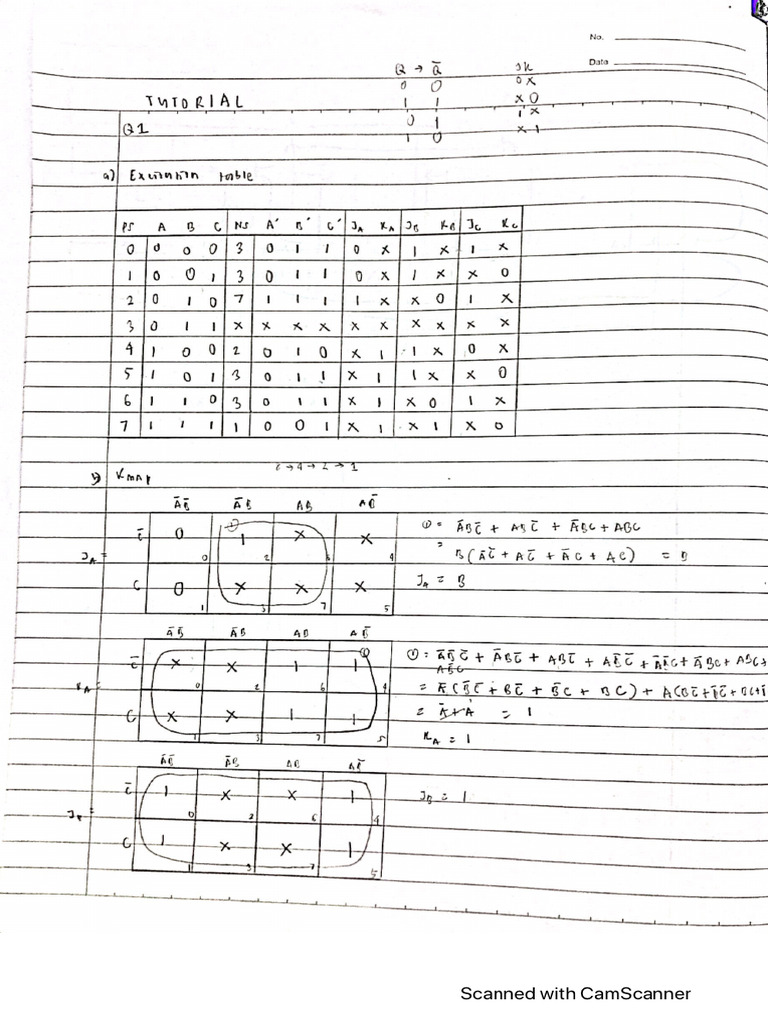 No.
Date
Q → Q̅ JK
0 0 0 X
1 1 X 0
0 1 1 X
1 0 X 1
TUTORIAL
Q1
a) Excitation table
PS A B C NS A' B' C' JA KA JB KB JC KC
0 0 0 0 3 0 1 1 0 X 1 X 1 X
1 0 0 1 3 0 1 1 0 X 1 X X 0
2 0 1 0 7 1 1 1 1 X X 0 1 X
3 0 1 1 X X X X X X X X X X
4 1 0 0 2 0 1 0 X 1 1 X 0 X
5 1 0 1 3 0 1 1 X 1 1 X X 0
6 1 1 0 3 0 1 1 X 1 X 0 1 X
7 1 1 1 1 0 0 1 X 1 X 1 X 0
b) Kmap
A̅B̅ A̅B AB AB̅
JA = C̅ 0 0 1 2 X 6 X 4
C 0 1 X 3 X 7 X 5
① = A̅BC̅ + ABC̅ + A̅BC + ABC
= B(A̅C̅ + AC̅ + A̅C + AC) = B
JA = B
A̅B̅ A̅B AB AB̅
KA = C̅ X 0 X 2 1 6 1 4
C X 1 X 3 1 7 1 5
① = A̅B̅C̅ + A̅BC̅ + ABC̅ + AB̅C̅ + A̅B̅C + A̅BC + ABC +
AB̅C
= A̅(B̅C̅ + BC̅ + B̅C + BC) + A(BC̅ + B̅C̅ + BC +
= A̅ + A = 1
KA = 1
A̅B̅ A̅B AB AB̅
JB = C̅ 1 0 X 2 X 6 1 4
C 1 1 X 3 X 7 1 5
JB = 1
Scanned with CamScanner